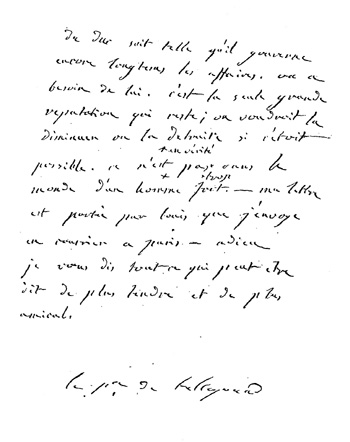 du duc soit telle qu'il gouverne
encore longtems les affaires. on a
besoin de lui. c'est la seule grande
reputation qui reste; on voudroit la
diminuer ou la detruire si c'etoit
+ en vérité
possible. ce n'est pas dans le
+ trop
monde d'un homme fort. — ma lettre
est portée par louis que j'envoye
en courrier a paris — adieu
je vous dis tout ce qui peut etre
dit de plus tendre et de plus
amical.
le pce de